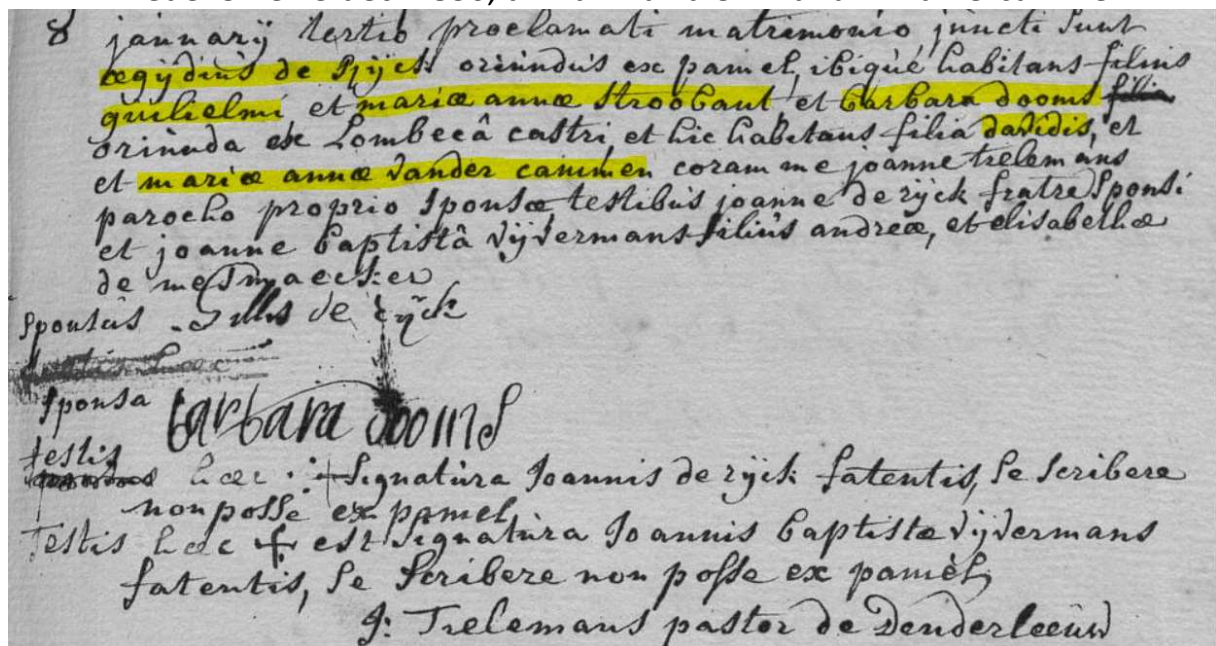 8 januarÿ tertio proclamati matrimonio juncti sunt
ægÿdius de Rÿck oriundus ex pamel, ibique habitans filius
guilielmi et mariæ annæ Stroobant et barbara dooms filia
oriunda ex Lombecâ castri, et hic habitans filia davidis, et
et mariæ annæ vander cammen coram me joanne trelemans
parocho proprio Sponsæ, testibus joanne de rÿck fratre Sponsi
et joanne baptistâ vÿvermans filius andreæ, et elisabethæ
de mesmaecker
Sponsus de rÿck
Sponsa barbara dooms
testis
hæc + Signatura Joannis de rÿck fatentis, se scribere
non posse ex pamel
Testis hæc + est Signatura Joannis baptistæ vÿvermans
fatentis, se scribere non posse ex pamèl
J: Trelemans pastor de Denderleeuw